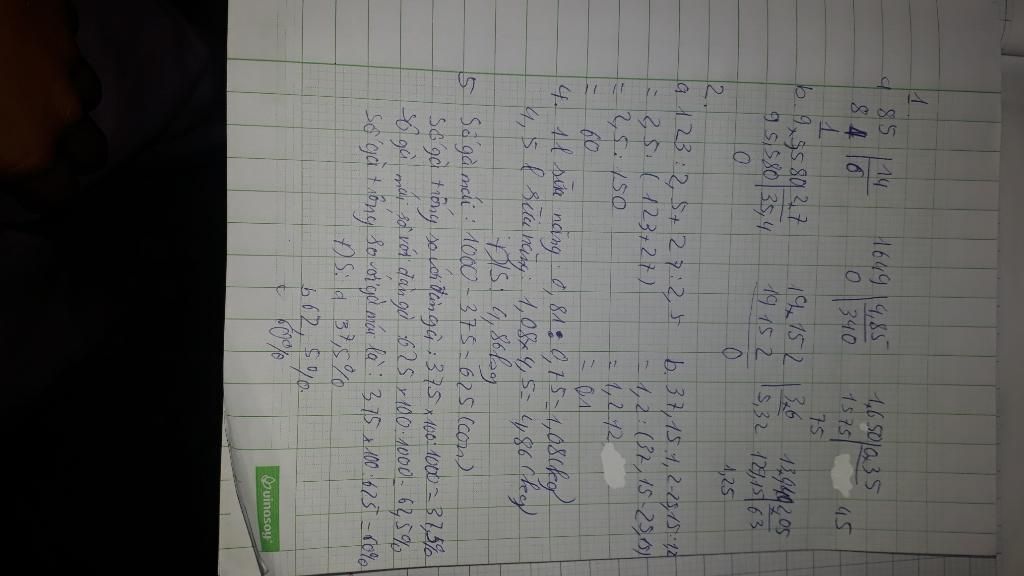 1.
a 85 | 14
84 | 6
1
1649 | 4,85
0 | 340
1,650 | 0,35
1575
75
45
b. 9,5580 2,7
95,580 | 35,4
0
19,152 | 3,6
19152 | 5,32
0
129,15 | 63
1,25
2.
a 123 : 2,5 + 27 : 2,5
= 2,5 : (123+27)
= 2,5 : 150
= 60
b. 37,15 : 1,2 - 23,15 : 1,2
= 1,2 :
= 1,2 12
= 0,1
4. 1l sữa nặng : 0,81 : 0,75 = 1,08 (kg)
4,5 l sữa nặng : 1,08 x 4,5 = 4,86 (kg)
Đ/S : 4,86 kg
5 Số gà mái : 1000 - 375 = 625 (con)
Số gà trống so với đàn gà : 375 x 100 : 1000 = 37,5%
Số gà mái so với đàn gà 625 x 100 : 1000 = 62,5%
Số gà trống so với gà mái là : 375 x 100 : 625 = 60%
Đ/S : a 37,5%
b 62,5%
c 60%
vinasoy